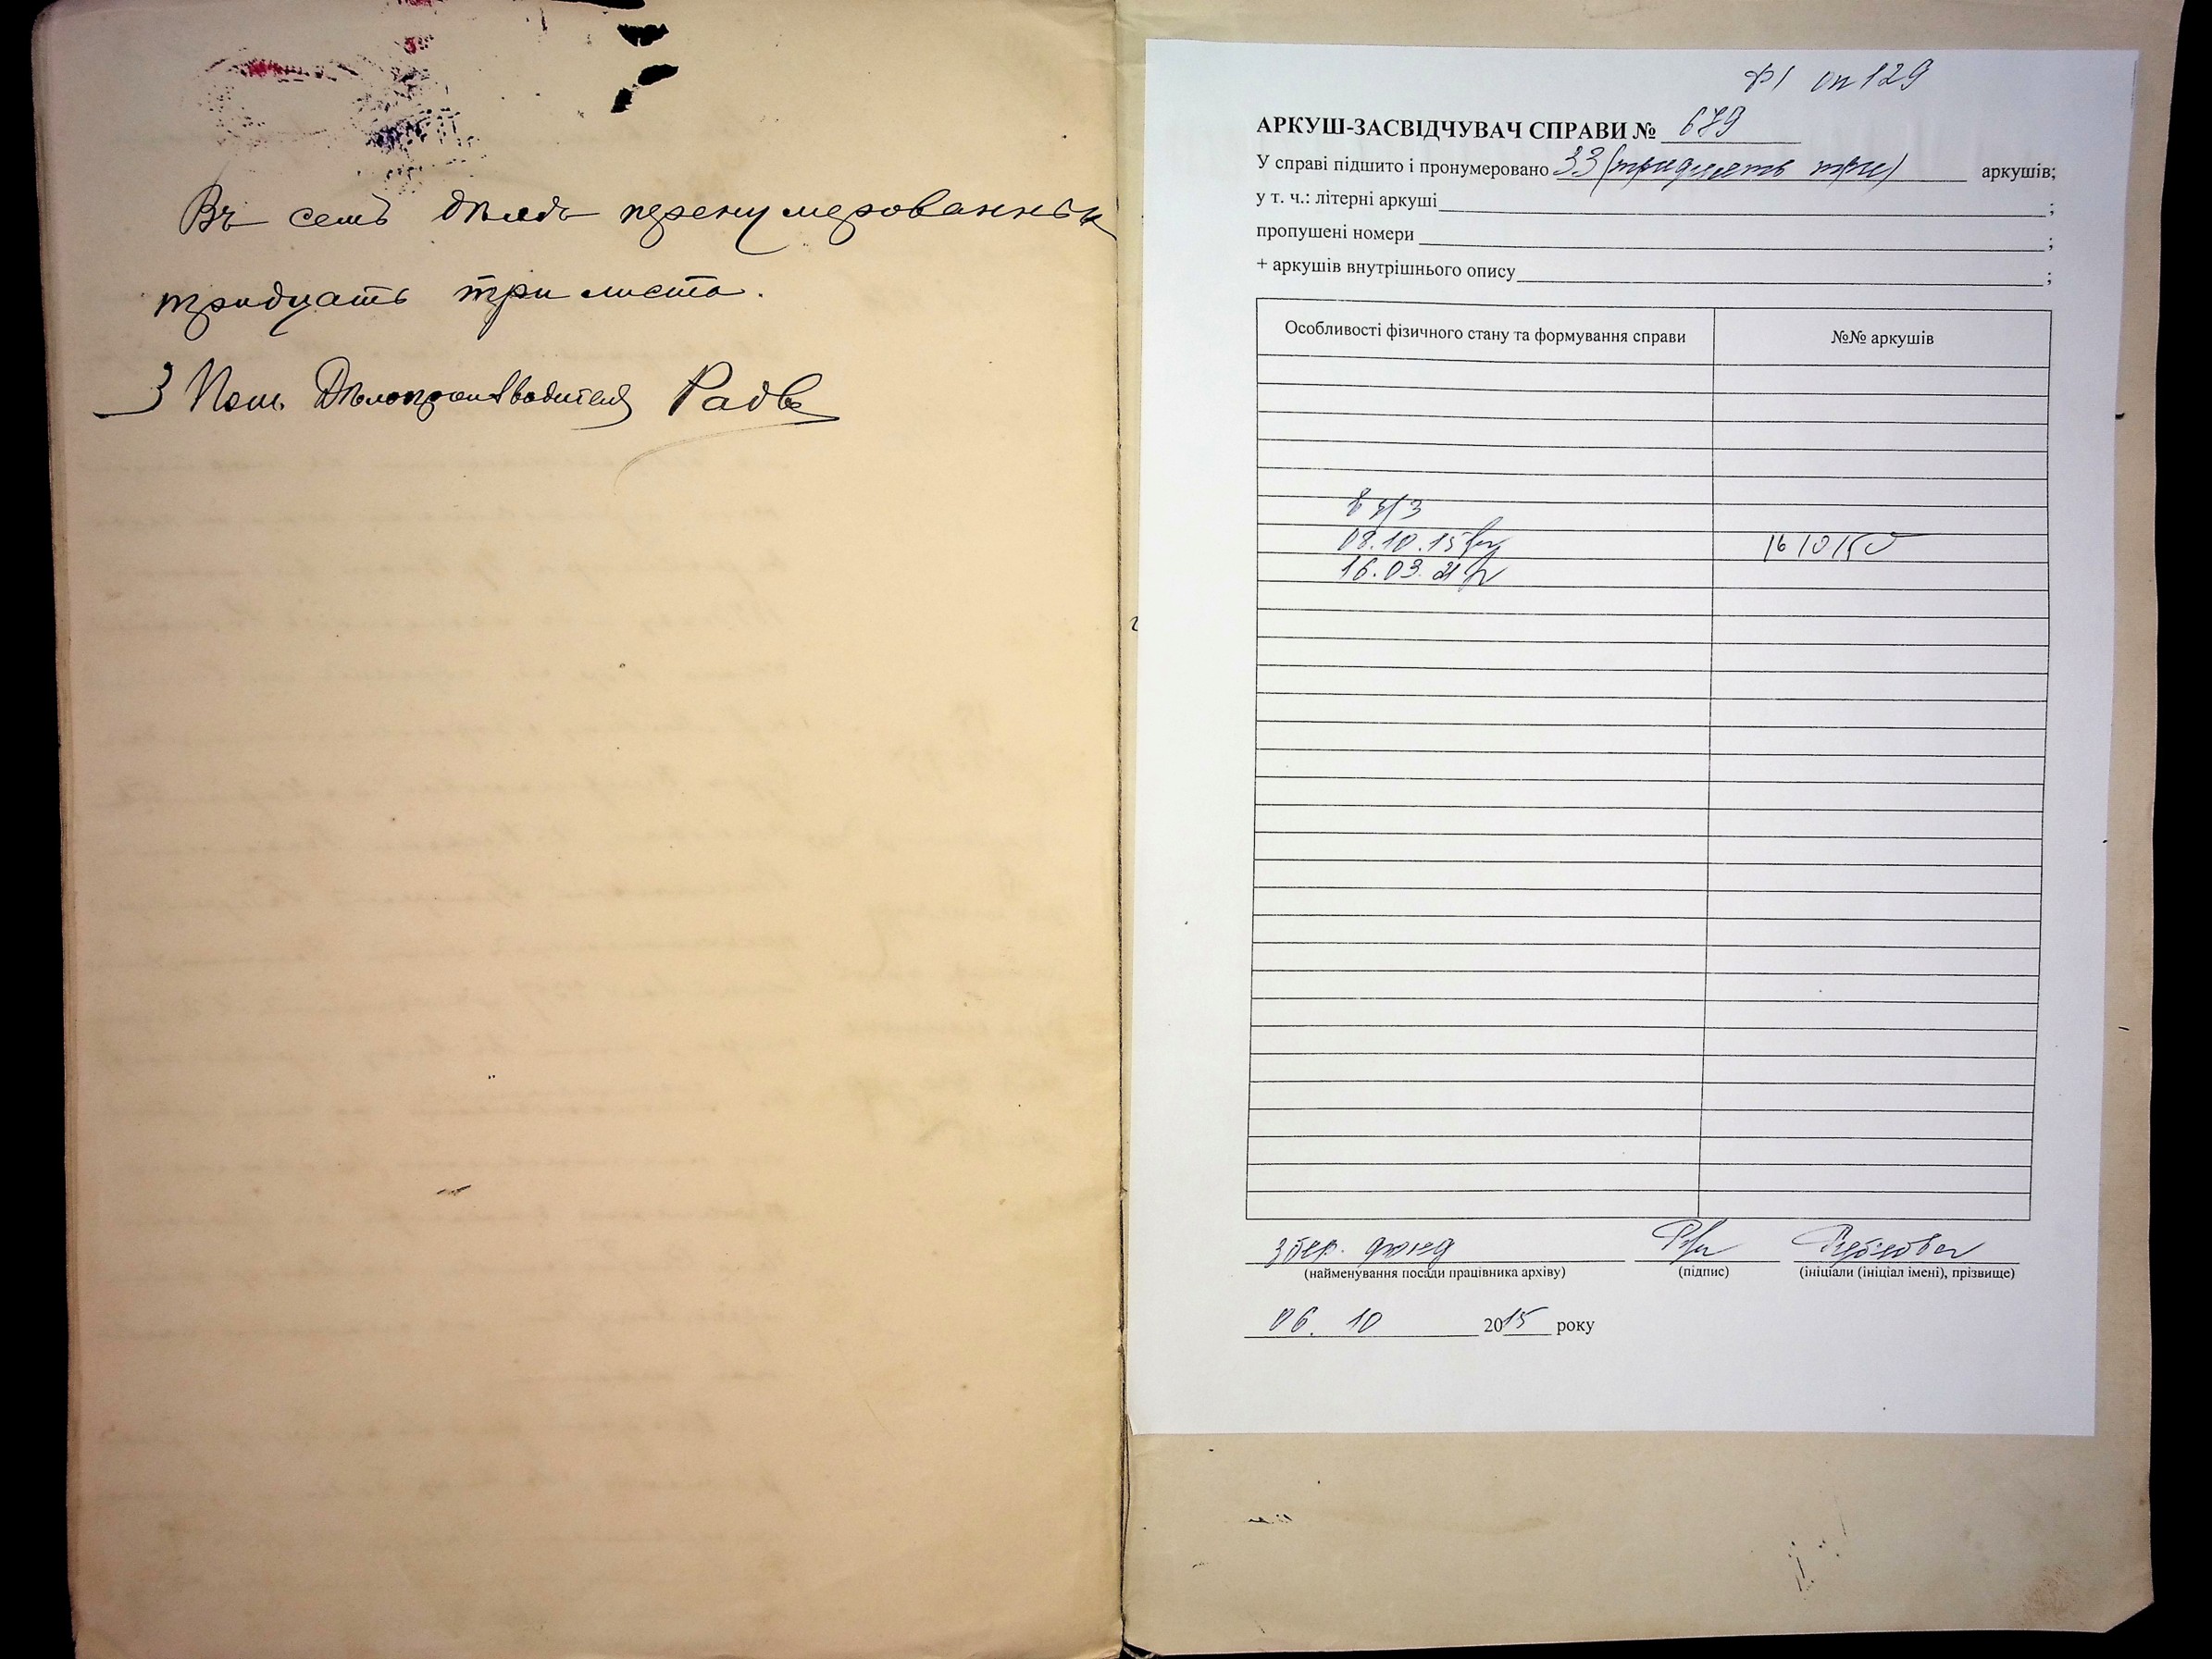 Въ семъ дѣлѣ перенумерованныхъ
тридцать три листа.
Пом. Дѣлопроизводителя
Ф1 оп 129
АРКУШ-ЗАСВІДЧУВАЧ СПРАВИ № 679
У справі підшито і пронумеровано 33 (тридцять три) аркушів;
у т. ч.: літерні аркуші ;
пропущені номери ;
+ аркушів внутрішнього опису ;
Особливості фізичного стану та формування справи
№№ аркушів
08.10.15
16.03.21
збер. фонд
(найменування посади працівника архіву)
(підпис)
(ініціали (ініціал імені), прізвище)
06. 10 2015 року